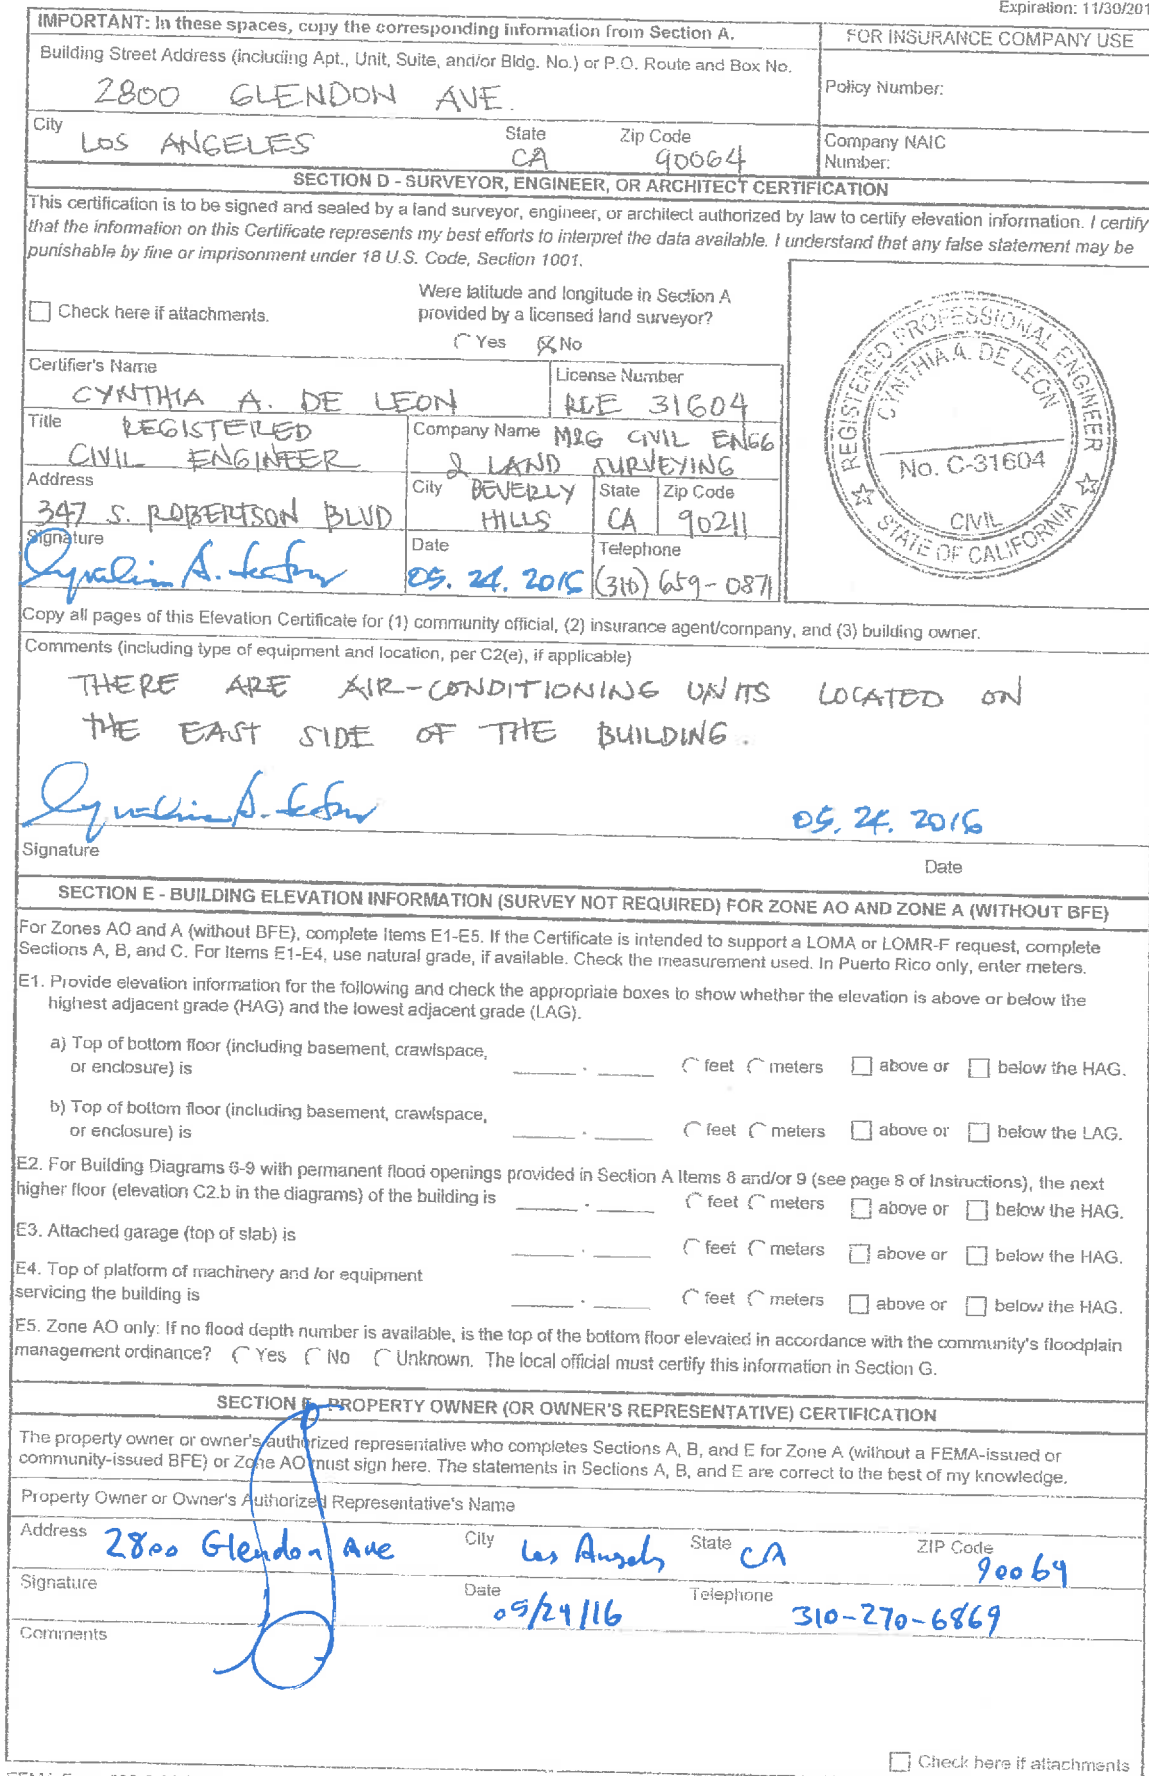 Expiration: 11/30/201
IMPORTANT: In these spaces, copy the corresponding information from Section A.
FOR INSURANCE COMPANY USE
Building Street Address (including Apt., Unit, Suite, and/or Bldg. No.) or P.O. Route and Box No.
2800 GLENDON AVE.
Policy Number:
City LOS ANGELES State CA Zip Code 90064
Company NAIC
Number:
SECTION D - SURVEYOR, ENGINEER, OR ARCHITECT CERTIFICATION
This certification is to be signed and sealed by a land surveyor, engineer, or architect authorized by law to certify elevation information. I certify
that the information on this Certificate represents my best efforts to interpret the data available. I understand that any false statement may be
punishable by fine or imprisonment under 18 U.S. Code, Section 1001.
Check here if attachments.
Were latitude and longitude in Section A
provided by a licensed land surveyor?
Yes No
REGISTERED PROFESSIONAL ENGINEER
CYNTHIA A. DE LEON
No. C-31604
CIVIL
STATE OF CALIFORNIA
Certifier's Name
CYNTHIA A. DE LEON
License Number
RCE 31604
Title REGISTERED
CIVIL ENGINEER
Company Name M&G CIVIL ENGG
& LAND SURVEYING
Address
347 S. ROBERTSON BLVD
City BEVERLY
HILLS
State
CA
Zip Code
90211
Signature
Date
05. 24. 2016
Telephone
(310) 659-0871
Copy all pages of this Elevation Certificate for (1) community official, (2) insurance agent/company, and (3) building owner.
Comments (including type of equipment and location, per C2(e), if applicable)
THERE ARE AIR-CONDITIONING UNITS LOCATED ON
THE EAST SIDE OF THE BUILDING.
05. 24. 2016
Signature
Date
SECTION E - BUILDING ELEVATION INFORMATION (SURVEY NOT REQUIRED) FOR ZONE AO AND ZONE A (WITHOUT BFE)
For Zones AO and A (without BFE), complete Items E1-E5. If the Certificate is intended to support a LOMA or LOMR-F request, complete
Sections A, B, and C. For Items E1-E4, use natural grade, if available. Check the measurement used. In Puerto Rico only, enter meters.
E1. Provide elevation information for the following and check the appropriate boxes to show whether the elevation is above or below the
highest adjacent grade (HAG) and the lowest adjacent grade (LAG).
a) Top of bottom floor (including basement, crawlspace,
or enclosure) is ____ . ____ feet meters above or below the HAG.
b) Top of bottom floor (including basement, crawlspace,
or enclosure) is ____ . ____ feet meters above or below the LAG.
E2. For Building Diagrams 6-9 with permanent flood openings provided in Section A Items 8 and/or 9 (see page 8 of Instructions), the next
higher floor (elevation C2.b in the diagrams) of the building is ____ . ____ feet meters above or below the HAG.
E3. Attached garage (top of slab) is ____ . ____ feet meters above or below the HAG.
E4. Top of platform of machinery and /or equipment
servicing the building is ____ . ____ feet meters above or below the HAG.
E5. Zone AO only: If no flood depth number is available, is the top of the bottom floor elevated in accordance with the community's floodplain
management ordinance? Yes No Unknown. The local official must certify this information in Section G.
SECTION F - PROPERTY OWNER (OR OWNER'S REPRESENTATIVE) CERTIFICATION
The property owner or owner's authorized representative who completes Sections A, B, and E for Zone A (without a FEMA-issued or
community-issued BFE) or Zone AO must sign here. The statements in Sections A, B, and E are correct to the best of my knowledge.
Property Owner or Owner's Authorized Representative's Name
Address 2800 Glendon Ave City Los Angels State CA ZIP Code 90064
Signature Date 05/24/16 Telephone 310-270-6869
Comments
Check here if attachments